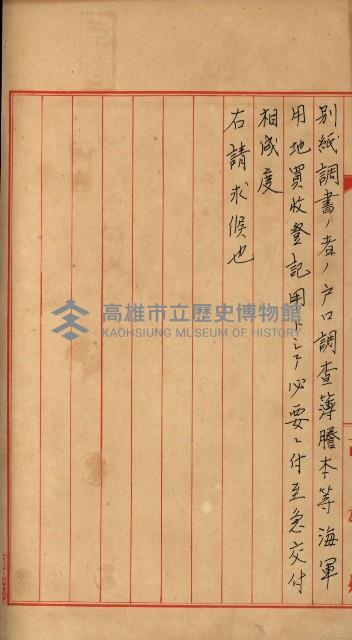 別紙調書ノ者ノ戸口調査簿謄本等海軍
用地買收登記用トシテ必要ニ付至急交付
相成度
右請求候也
高雄市立歷史博物館
KAOHSIUNG MUSEUM OF HISTORY